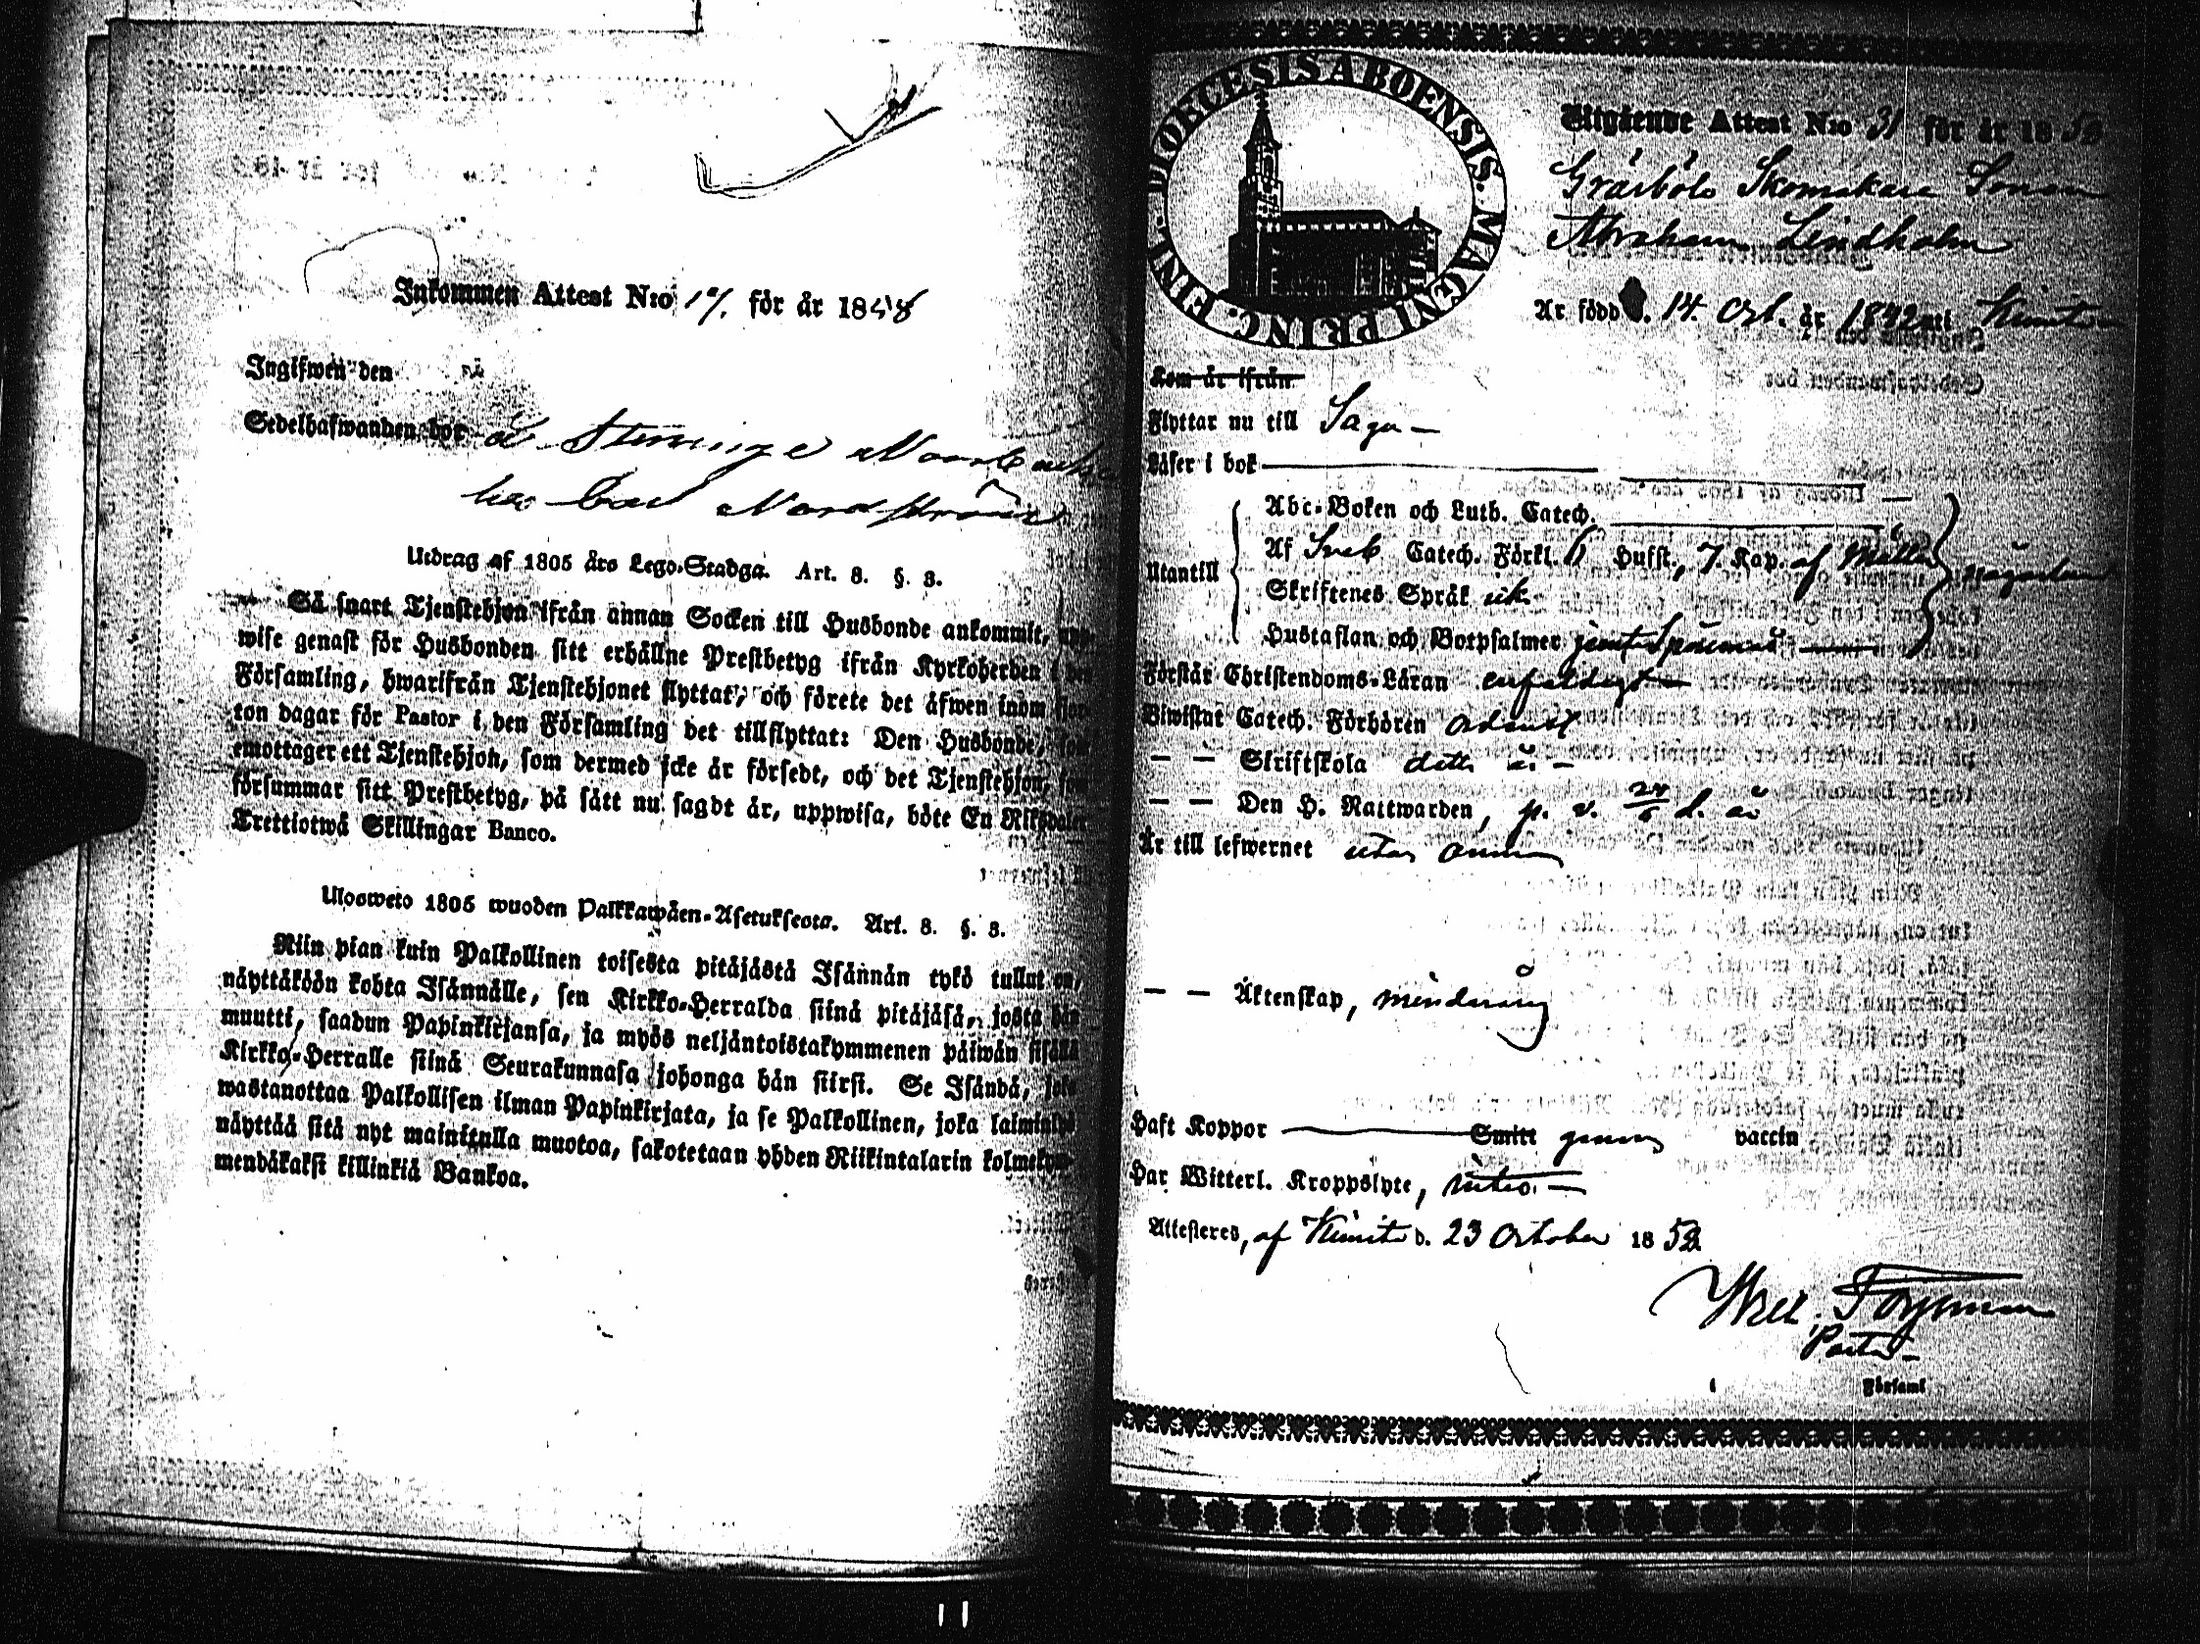 Inkommen Attest N:o för år 18
Ingifwen den
Sedelhafwanden bor å
hos Carl Nordström
Utdrag af 1805 års Lego-Stadga. Art. 8. §. 8.
Så snart Tjenstehjon ifrån annan Socken till Husbonde ankommit,
wise genast för Husbonden sitt erhållne Prestbetyg ifrån Kyrkoherden i
Församling, hwarifrån Tjenstehjonet flyttat, och förete det äfwen inom
ton dagar för Pastor i den Församling det tillflyttat: Den Husbonde,
emottager ett Tjenstehjon, som dermed icke är försedt, och det Tjenstehjon,
försummar sitt Prestbetyg, på sätt nu sagdt är, uppwisa, böte En Riksdaler
Trettiotwå Skillingar Banco.
Ulosweto 1805 wuoden Palkkawäen-Asetuksesta. Art. 8. §. 8.
Niin pian kuin Palkollinen toisesta pitäjästä Isännän tykö tullut on,
näyttäköön kohta Isännälle, sen Kirkko-Herralda siinä pitäjäsä, josta hän
muutti, saadun Papinkirjansa, ja myös neljäntoistakymmenen päiwän sisällä
Kirkko-Herralle siinä Seurakunnasa johonga hän siirsi. Se Isändä,
wastanottaa Palkollisen ilman Papinkirjata, ja se Palkollinen, joka
näyttää sitä nyt mainitulla muotoa, sakotetaan yhden Riikintalarin
mendäkaksi killinkiä Bankoa.
DIOECESIS ABOENSIS. MAGNI PRINC. FINL.
Utgående Attest N:o 31 för år 18
Gräsböls Skomakare Sonen
Abraham Lindholm
Är född d. 14. Oct. år 1842 uti Kimito
Kom är ifrån
Flyttar nu till Sagu
Läser i bok
Abc-Boken och Luth. Catech.
Af Sveb Catech. Förkl. Hufst., 7. Kap. af
Utantill
Skriftenes Språk
Hustaflan och Botpsalmer jemte Spörsmål
Förstår Christendoms-Läran enfaldigt
Biwistat Catech. Förhören
— — Skriftskola detta år
— — Den H. Nattwarden, p. v. 24/6 d. år
Är till lefwernet utan anm
— — Äktenskap, minderårig
Haft Koppor Smitt genom vaccin
Har Witterl. Kroppslyte, intet
Attesteres, af Kimito d. 23 October 18
Past
Församl
11